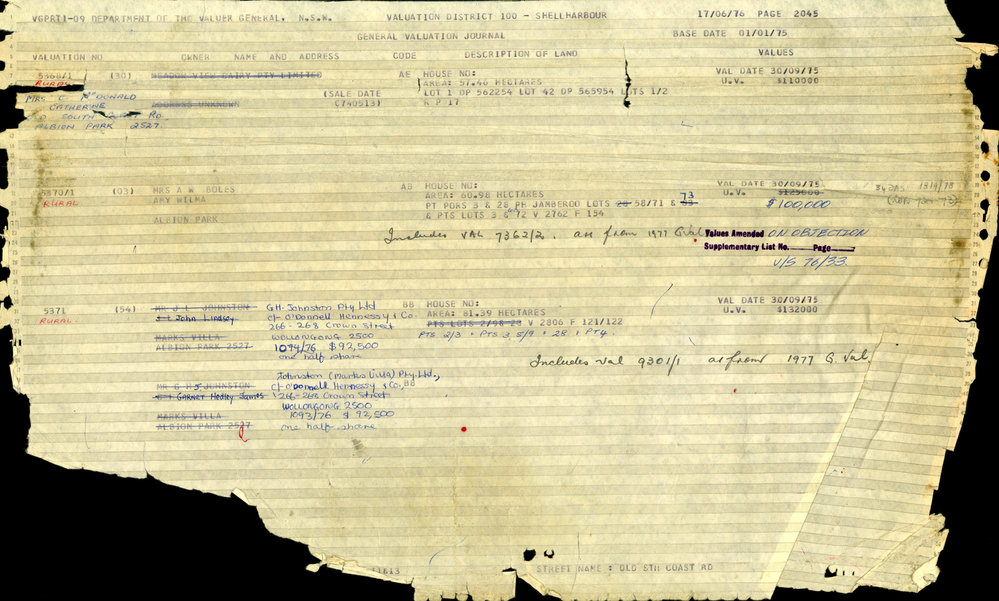 VGPRT1-09 DEPARTMENT OF THE VALUER GENERAL, N.S.W. VALUATION DISTRICT 100 - SHELLHARBOUR 17/06/76 PAGE 2045
GENERAL VALUATION JOURNAL BASE DATE 01/01/75
VALUATION NO OWNER NAME AND ADDRESS CODE DESCRIPTION OF LAND VALUES
5368/1 (30) MEADOW VIEW DAIRY PTY LIMITED AE HOUSE NO: VAL DATE 30/09/75
RURAL AREA: 57.46 HECTARES U.V. $110000
MRS C McDONALD (SALE DATE LOT 1 DP 562254 LOT 42 DP 565954 LOTS 1/2
CATHERINE ADDRESS UNKNOWN (740513) R P 17
OLD SOUTH COAST RD.
ALBION PARK 2527.
5370/1 (03) MRS A W BOLES AB HOUSE NO: VAL DATE 30/09/75
RURAL AMY WILMA AREA: 60.98 HECTARES U.V. $125000
PT PORS 3 & 28 PH JAMBEROO LOTS 20 58/71 & 63 73 $100,000
ALBION PARK & PTS LOTS 3 & 72 V 2762 F 154
Includes VAL 7362/2. as from 1977 G.Val Values Amended ON OBJECTION
Supplementary List No. Page
V/S 76/33.
5371 (54) MR J L JOHNSTON G.H. Johnston Pty Ltd BB HOUSE NO: VAL DATE 30/09/75
RURAL John Lindsay c/- O'Donnell Hennessy & Co. AREA: 81.39 HECTARES U.V. $132000
266-268 Crown Street PTS LOTS 2/98 28 V 2806 F 121/122
MARKS VILLA WOLLONGONG 2500 PTS 2/3 + PTS 3, 5/9 + 28 + PT4.
ALBION PARK 2527 1094/76 $92,500
one half share Includes val 9301/1 as from 1977 G. Val.
Johnston (Marks Villa) Pty. Ltd.,
MR G H J JOHNSTON c/- O'Donnell Hennessy & Co., BB
Garnet Hedley James 266-268 Crown Street
WOLLONGONG 2500
MARKS VILLA 1093/76 $92,500
ALBION PARK 2527 one half share
STREET NAME : OLD STH COAST RD